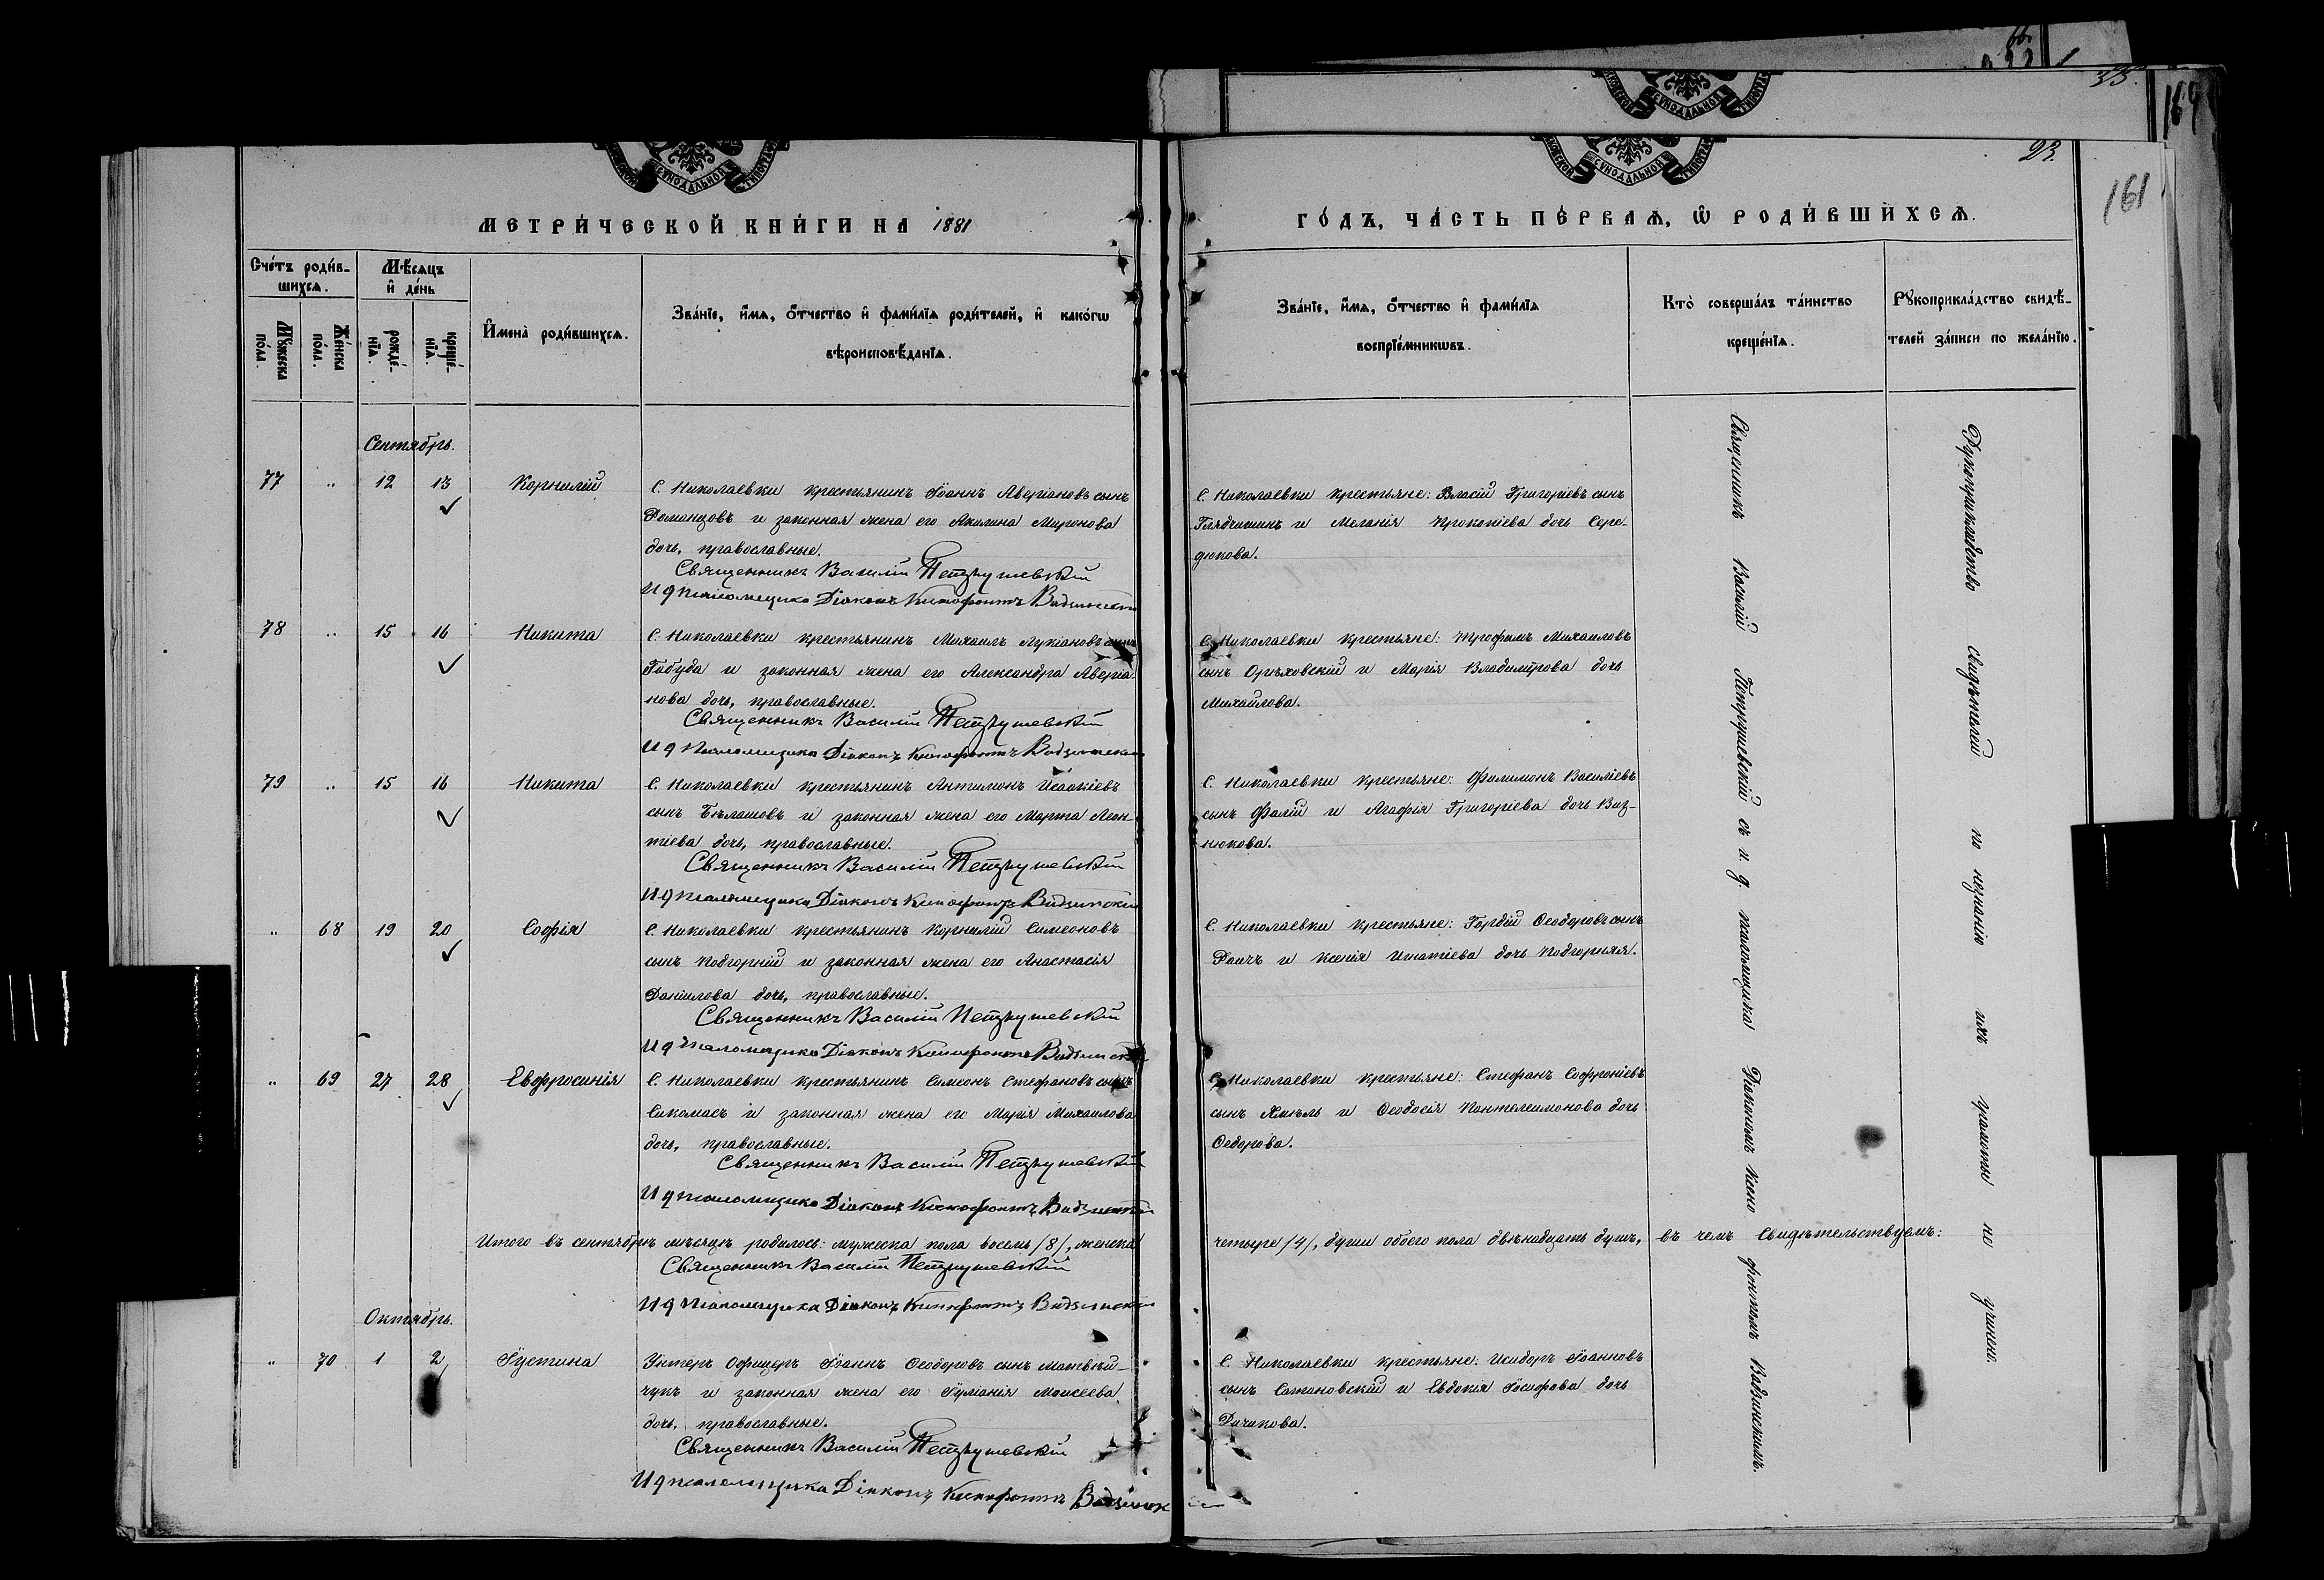 66.
33.
169
СѴНОДАЛЬНОЙ
23.
161
МЕТРИ́ЧЕСКОЙ КНИ́ГИ НА 1881
ГО́ДЪ, ЧА́СТЬ ПЕ́РВАѦ, Ѡ РОДИ́ВШИХСѦ.
Сче́тъ роди́в-
шихсѧ.
Мѣ́сѧцъ
и҆ де́нь
Мꙋ́жеска
по́ла.
Же́нска
по́ла.
рожде́-
нїѧ.
креще́-
нїѧ.
И҆мена̀ роди́вшихсѧ.
Зва́нїе, и҆́мѧ, ѻ҆́тчество и҆ фами́лїѧ роди́телей, и҆ како́гѡ
вѣроисповѣ́данїѧ.
Зва́нїе, и҆́мѧ, ѻ҆́тчество и҆ фами́лїѧ
воспрїе́мникѡвъ.
Кто̀ соверша́лъ та́инство
креще́нїѧ.
Рꙋкоприкла́дство свидѣ́-
телей за́писи по жела́нїю.
Сентябрь.
77 .. 12 13 Корнилій
С. Николаевки крестьянинъ Іоаннъ Аверіановъ сынъ
Романцовъ и законная жена его Акилина Миронова
дочь, православные.
Священникъ Василій Петрушевскій
И д Псаломщика Діаконъ Ксенофонтъ Вадзинскій
С. Николаевки крестьяне: Власій Григоріевъ сынъ
Глядчишинъ и Меланія Прокопіева дочь Сере-
дюкова.
78 .. 15 16 Никита
С. Николаевки крестьянинъ Михаилъ Лукіановъ сынъ
Габуда и законная жена его Александра Аверіа-
нова дочь, православные.
Священникъ Василій Петрушевскій
И д Псаломщика Діаконъ Ксенофонтъ Вадзинскій
С. Николаевки крестьяне: Трофимъ Михаиловъ
сынъ Орѣховскій и Марія Владимірова дочь
Михайлова.
79 .. 15 16 Никита
С. Николаевки крестьянинъ Антимонъ Исаакіевъ
сынъ Бѣлашовъ и законная жена его Марта Леон-
тіева дочь, православные.
Священникъ Василій Петрушевскій
И д Псаломщика Діаконъ Ксенофонтъ Вадзинскій
С. Николаевки крестьяне: Филимонъ Василіевъ
сынъ Фалій и Агафія Григоріева дочь Виз-
нюкова.
.. 68 19 20 Софія
С. Николаевки крестьянинъ Корнилій Симеоновъ
сынъ Подгорній и законная жена его Анастасія
Даніилова дочь, православные.
Священникъ Василій Петрушевскій
И д Псаломщика Діаконъ Ксенофонтъ Вадзинскій
С. Николаевки крестьяне: Гордій Ѳеодоровъ сынъ
Раичъ и Ксенія Игнатіева дочь Подгорняя.
.. 69 27 28 Евфросинія
С. Николаевки крестьянинъ Симеонъ Стефановъ сынъ
Сикомасъ и законная жена его Марія Михаилова
дочь, православные.
Священникъ Василій Петрушевскій
И д Псаломщика Діаконъ Ксенофонтъ Вадзинскій
С. Николаевки крестьяне: Стефанъ Софроніевъ
сынъ Хмѣль и Ѳеодосія Пантелеимонова дочь
Ѳедорова.
Итого въ сентябрѣ мѣсяцѣ родилось: мужеска пола восемь /8/, женска
четыре /4/, души обоего пола двѣнадцать душъ, въ чемъ свидѣтельствуемъ:
Священникъ Василій Петрушевскій
И д Псаломщика Діаконъ Ксенофонтъ Вадзинскій
Октябрь.
.. 70 1 2 Іустина
Унтеръ Офицеръ Іоаннъ Ѳеодоровъ сынъ Матвѣй-
чукъ и законная жена его Іуліанія Моисеева
дочь, православные.
Священникъ Василій Петрушевскій
И д псаломщика Діаконъ Ксенофонтъ Вадзинск
С. Николаевки крестьяне: Исидоръ Іоанновъ
сынъ Сатановскій и Евдокія Іосифова дочь
Дичикова.
Священникъ Василій Петрушевскій съ и. д. псаломщика Діакономъ Ксено фонтомъ Вадзинскимъ.
Рукоприкладство свидѣтелей по незнанію ихъ грамоты не учинено.